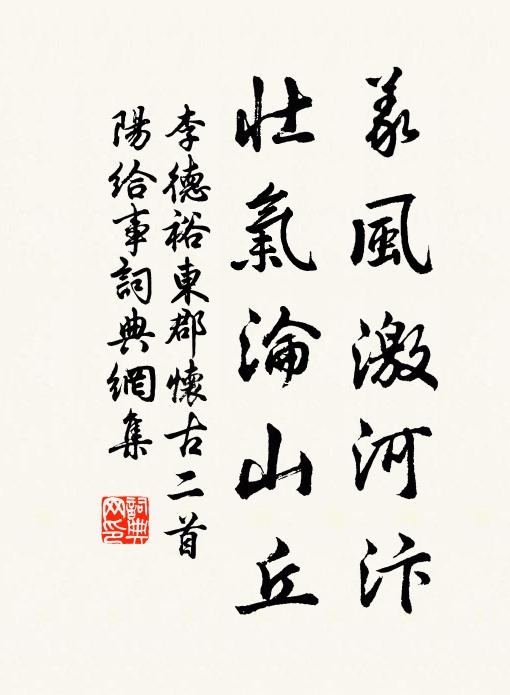 義風激河汴
壯氣淪山丘
李德裕東郡懷古二首
陽給事詞典網集
詞典網印